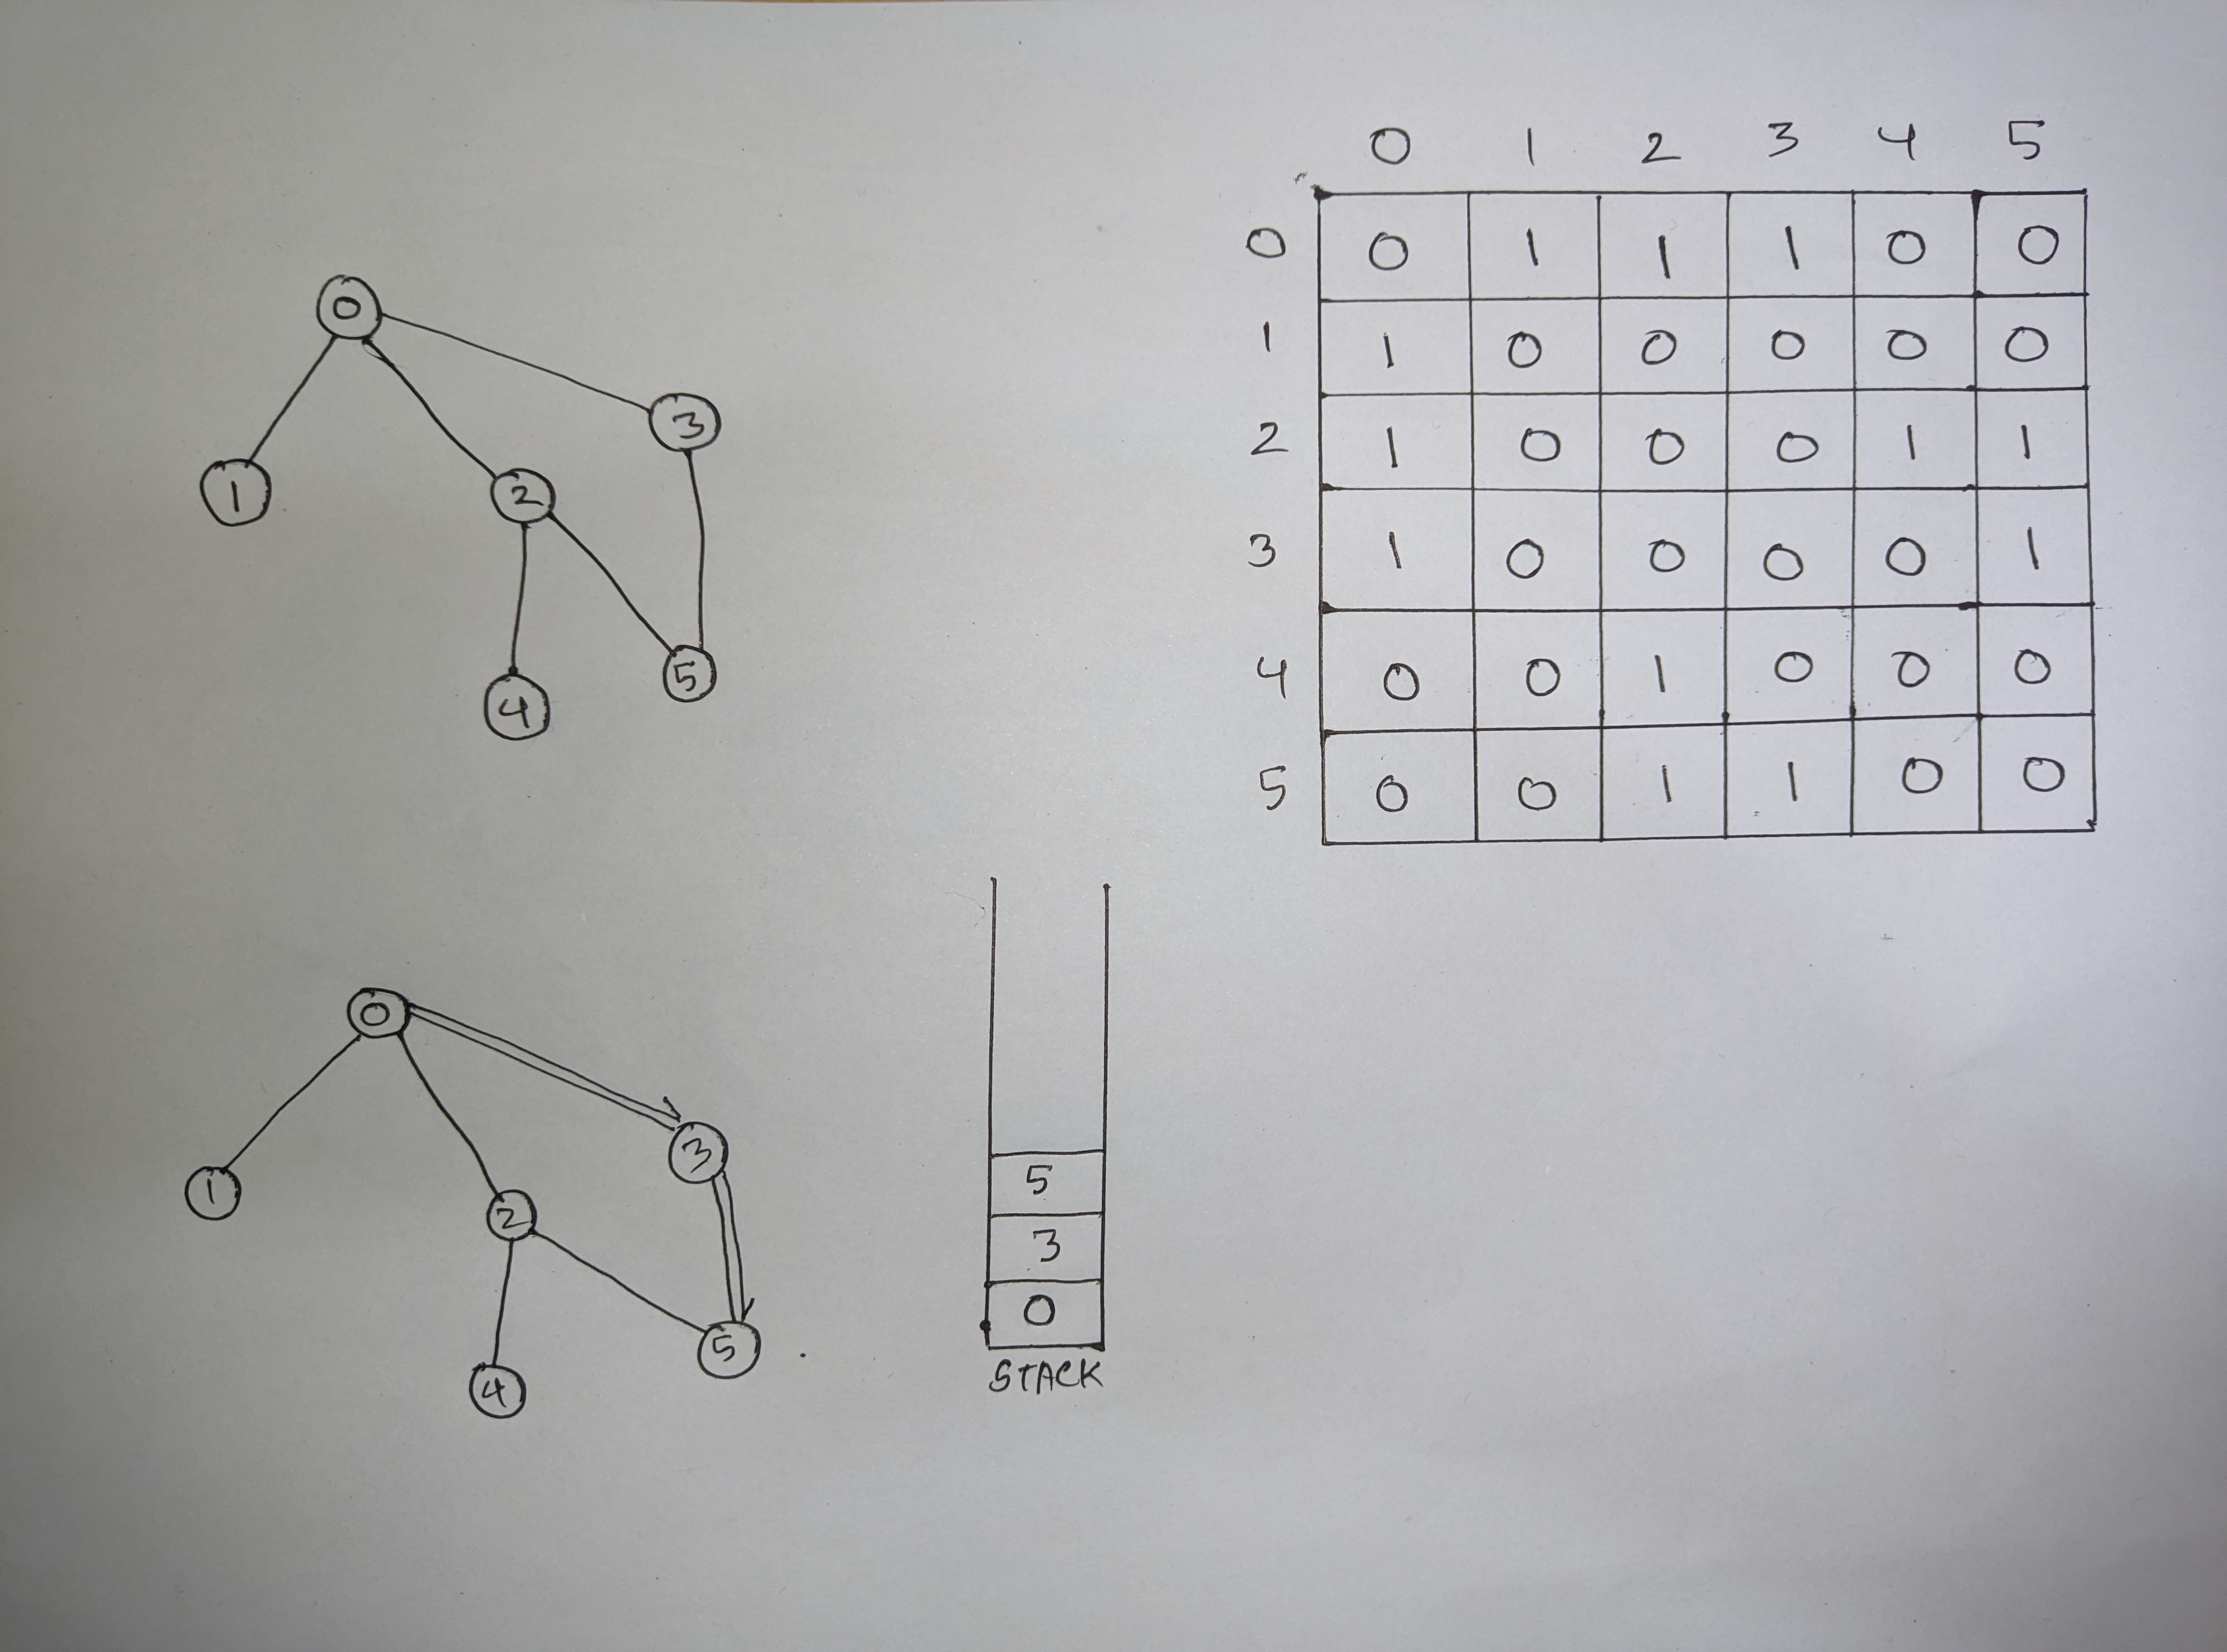 0 1 2 3 4 5
0 0 1 1 1 0 0
1 1 0 0 0 0 0
2 1 0 0 0 1 1
3 1 0 0 0 0 1
4 0 0 1 0 0 0
5 0 0 1 1 0 0
0
3
1
2
5
4
0
3
1
2
5
4
5
3
0
STACK